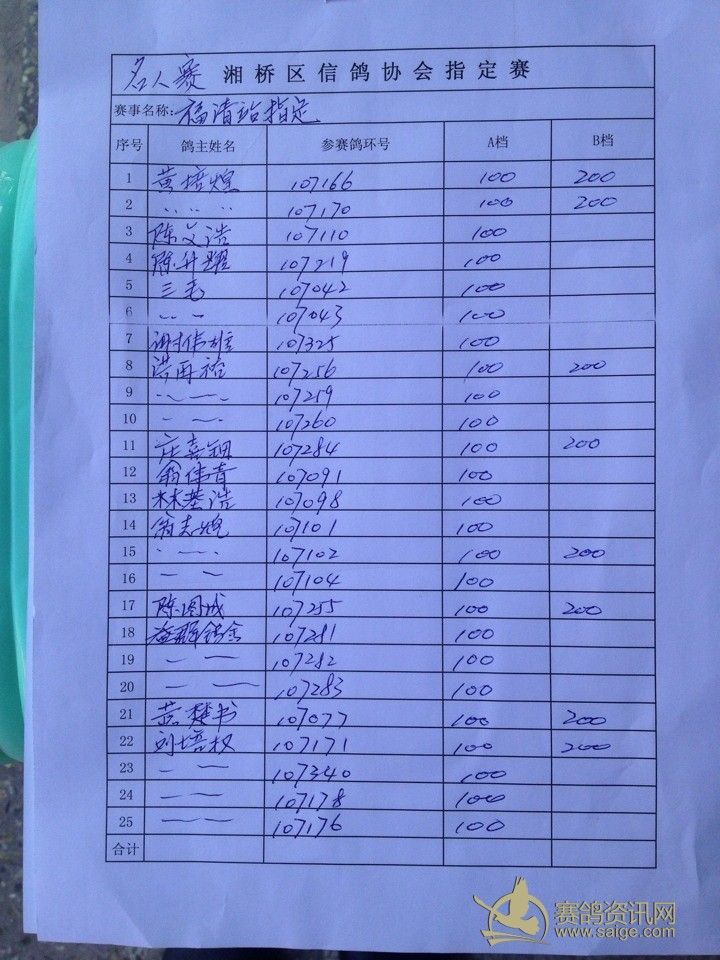 名人赛 湘桥区信鸽协会指定赛
赛事名称:福清站指定
序号 鸽主姓名 参赛鸽环号 A档 B档
1 黄培煌 107166 100 200
2 〃 〃 〃 107170 100 200
3 陈文浩 107110 100
4 陈升跃 107219 100
5 三毛 107042 100
6 〃 〃 107043 100
7 谢伟雄 107325 100
8 洪再裕 107256 100 200
9 〃 〃 〃 107259 100
10 〃 〃 〃 107260 100
11 庄喜钿 107284 100 200
12 翁伟青 107091 100
13 林基浩 107098 100
14 翁志 107101 100
15 〃 〃 〃 107102 100 200
16 〃 〃 107104 100
17 陈图成 107255 100 200
18 107281 100
19 〃 〃 107282 100
20 〃 〃 107283 100
21 黄楚书 107077 100 200
22 刘培权 107171 100 200
23 〃 〃 107340 100
24 〃 〃 107178 100
25 〃 〃 107176 100
合计
赛鸽资讯网
www.saige.com